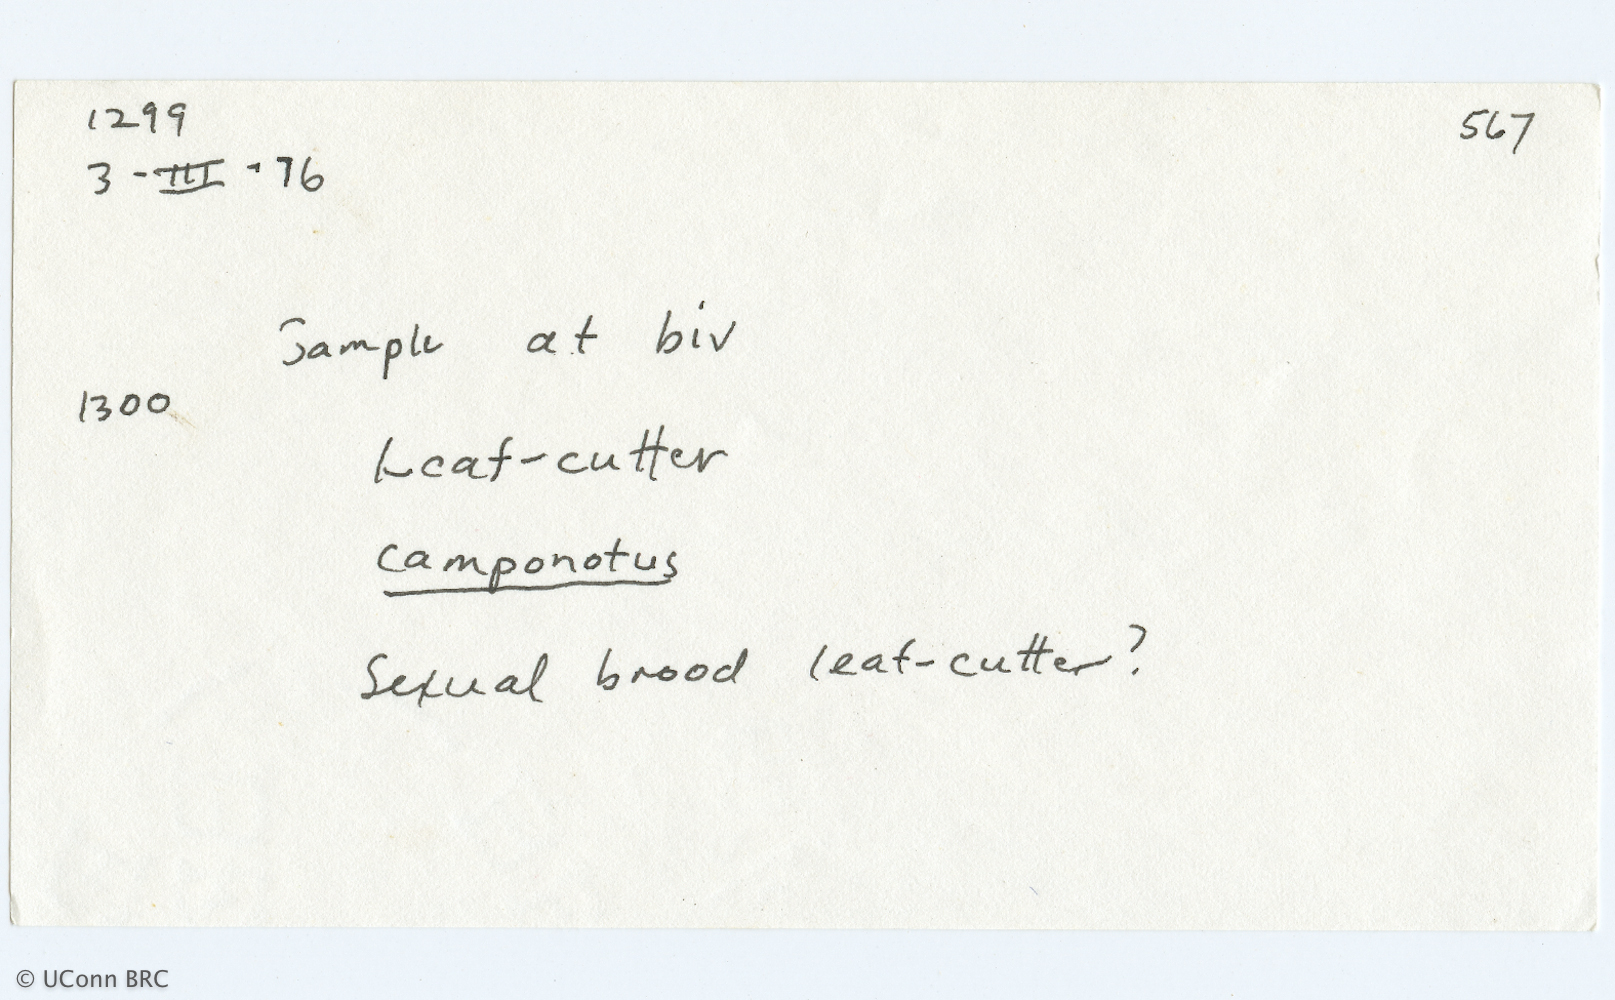 1299
567
3-III-76
Sample at biv
1300
Leaf-cutter
Camponotus
Sexual brood leaf-cutter?
© UConn BRC